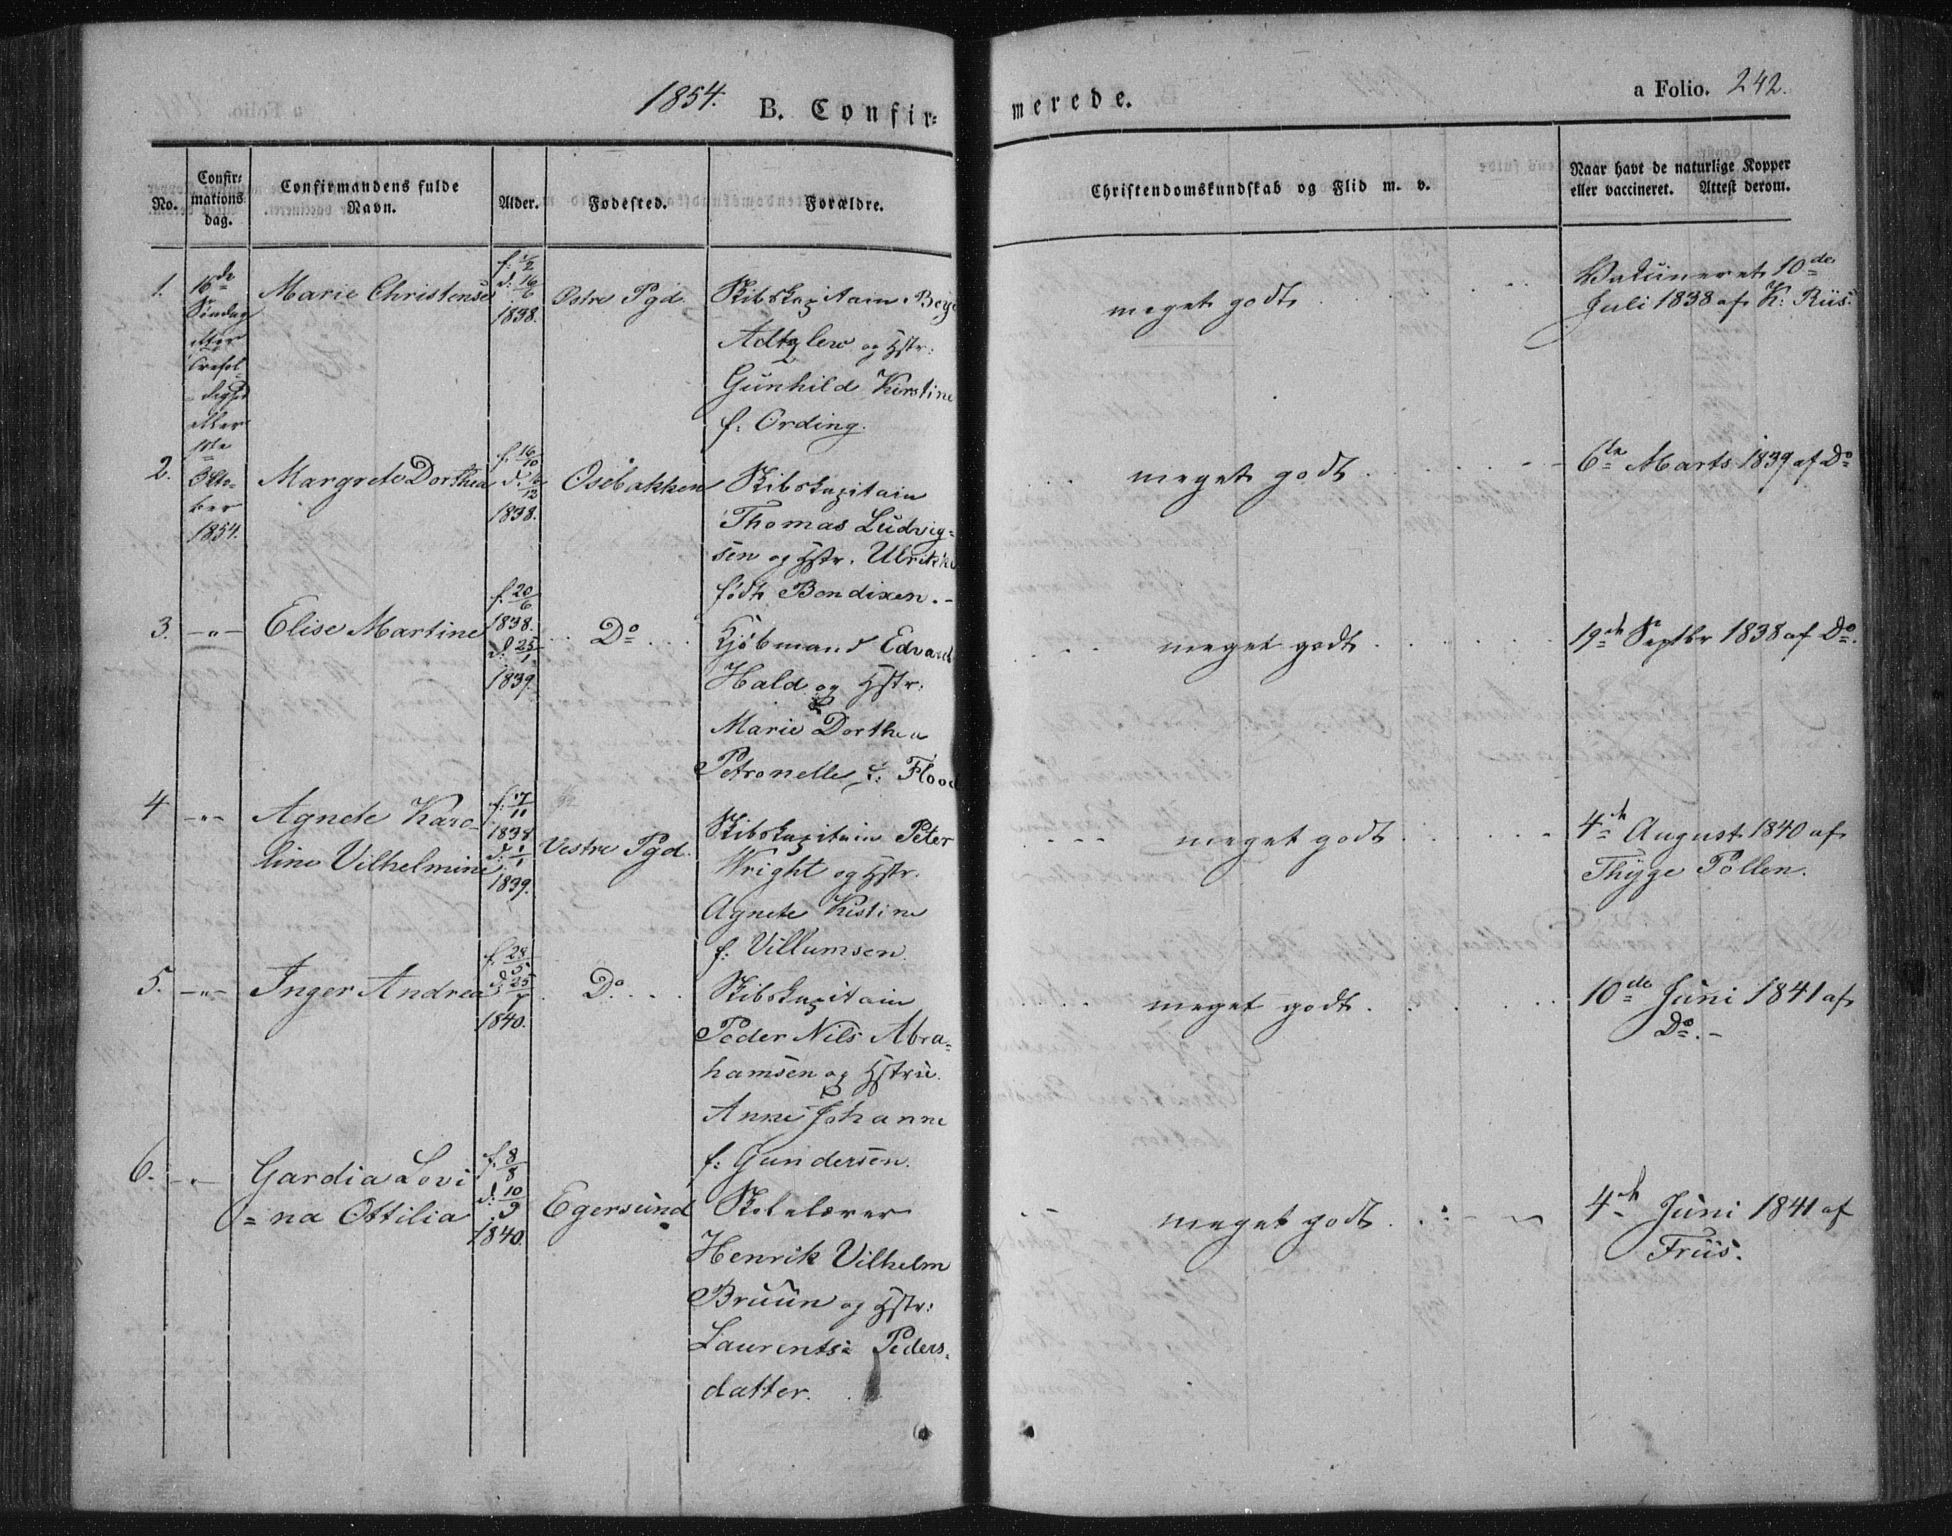 1854. B. Confir= merede. a Folio. 242.
No. Confir= mations dag. Confirmandens fulde Navn. Alder. Fødested. Forældre. Christendomskundskab og Flid m. v. Naar havt de naturlige Kopper eller vaccineret. Attest derom.
1. 16de Marie Christense f. d. 16/6 Østre Pgd. Skibskapitain meget godt Vakcineret 10de
Søndag 1838. Juli 1838 af K. Riis.
efter og Hstr:
Trefol=
dighed Gunhild Kirstine
eller f: Ording.
1ste
2. Okto= Margrete Dorthea f. 16/10 Osebakken Skibskapitain meget godt 6te Marts 1839 af Do
ber d. 1838. Thomas Ludvig=
1854. sen og Hstr. Ulrikke
født Bendixen.-
3. -"- Elise Martine f. 20/6 1838. Do Kjøbmand Edvard meget godt 19de Septbr 1838 af Do.
d. 25/1 1839. Hald og Hstr:
Marie Dorthea
Petronelle f: Flood
4 -"- Agnete Karo= f. 17/11 1838 Vestre Pgd. Skibskapitain Peter meget godt 4de August 1840 af
line Vilhelmine d. 1/1 1839. Wright og Hstr. Thyge Pollen.
Agnete Kistine
f: Villumsen.
5. -"- Inger Andrea f. 28/5 Do. Skibskapitain meget godt 10de Juni 1841 af
d. 25/7 1840. Peder Nils Abra= Do.-
hamsen og Hstru.
Anne Johanne
f: Gundersen.
6. -"- Gardia Lovi f. 8/8 Egersund Skolelærer meget godt 4de Juni 1841 af
=na Ottilia d: 10/9 1840. Henrik Vilhelm Friis.
Bruun og Hstr:
Laurentse Peders=
datter.